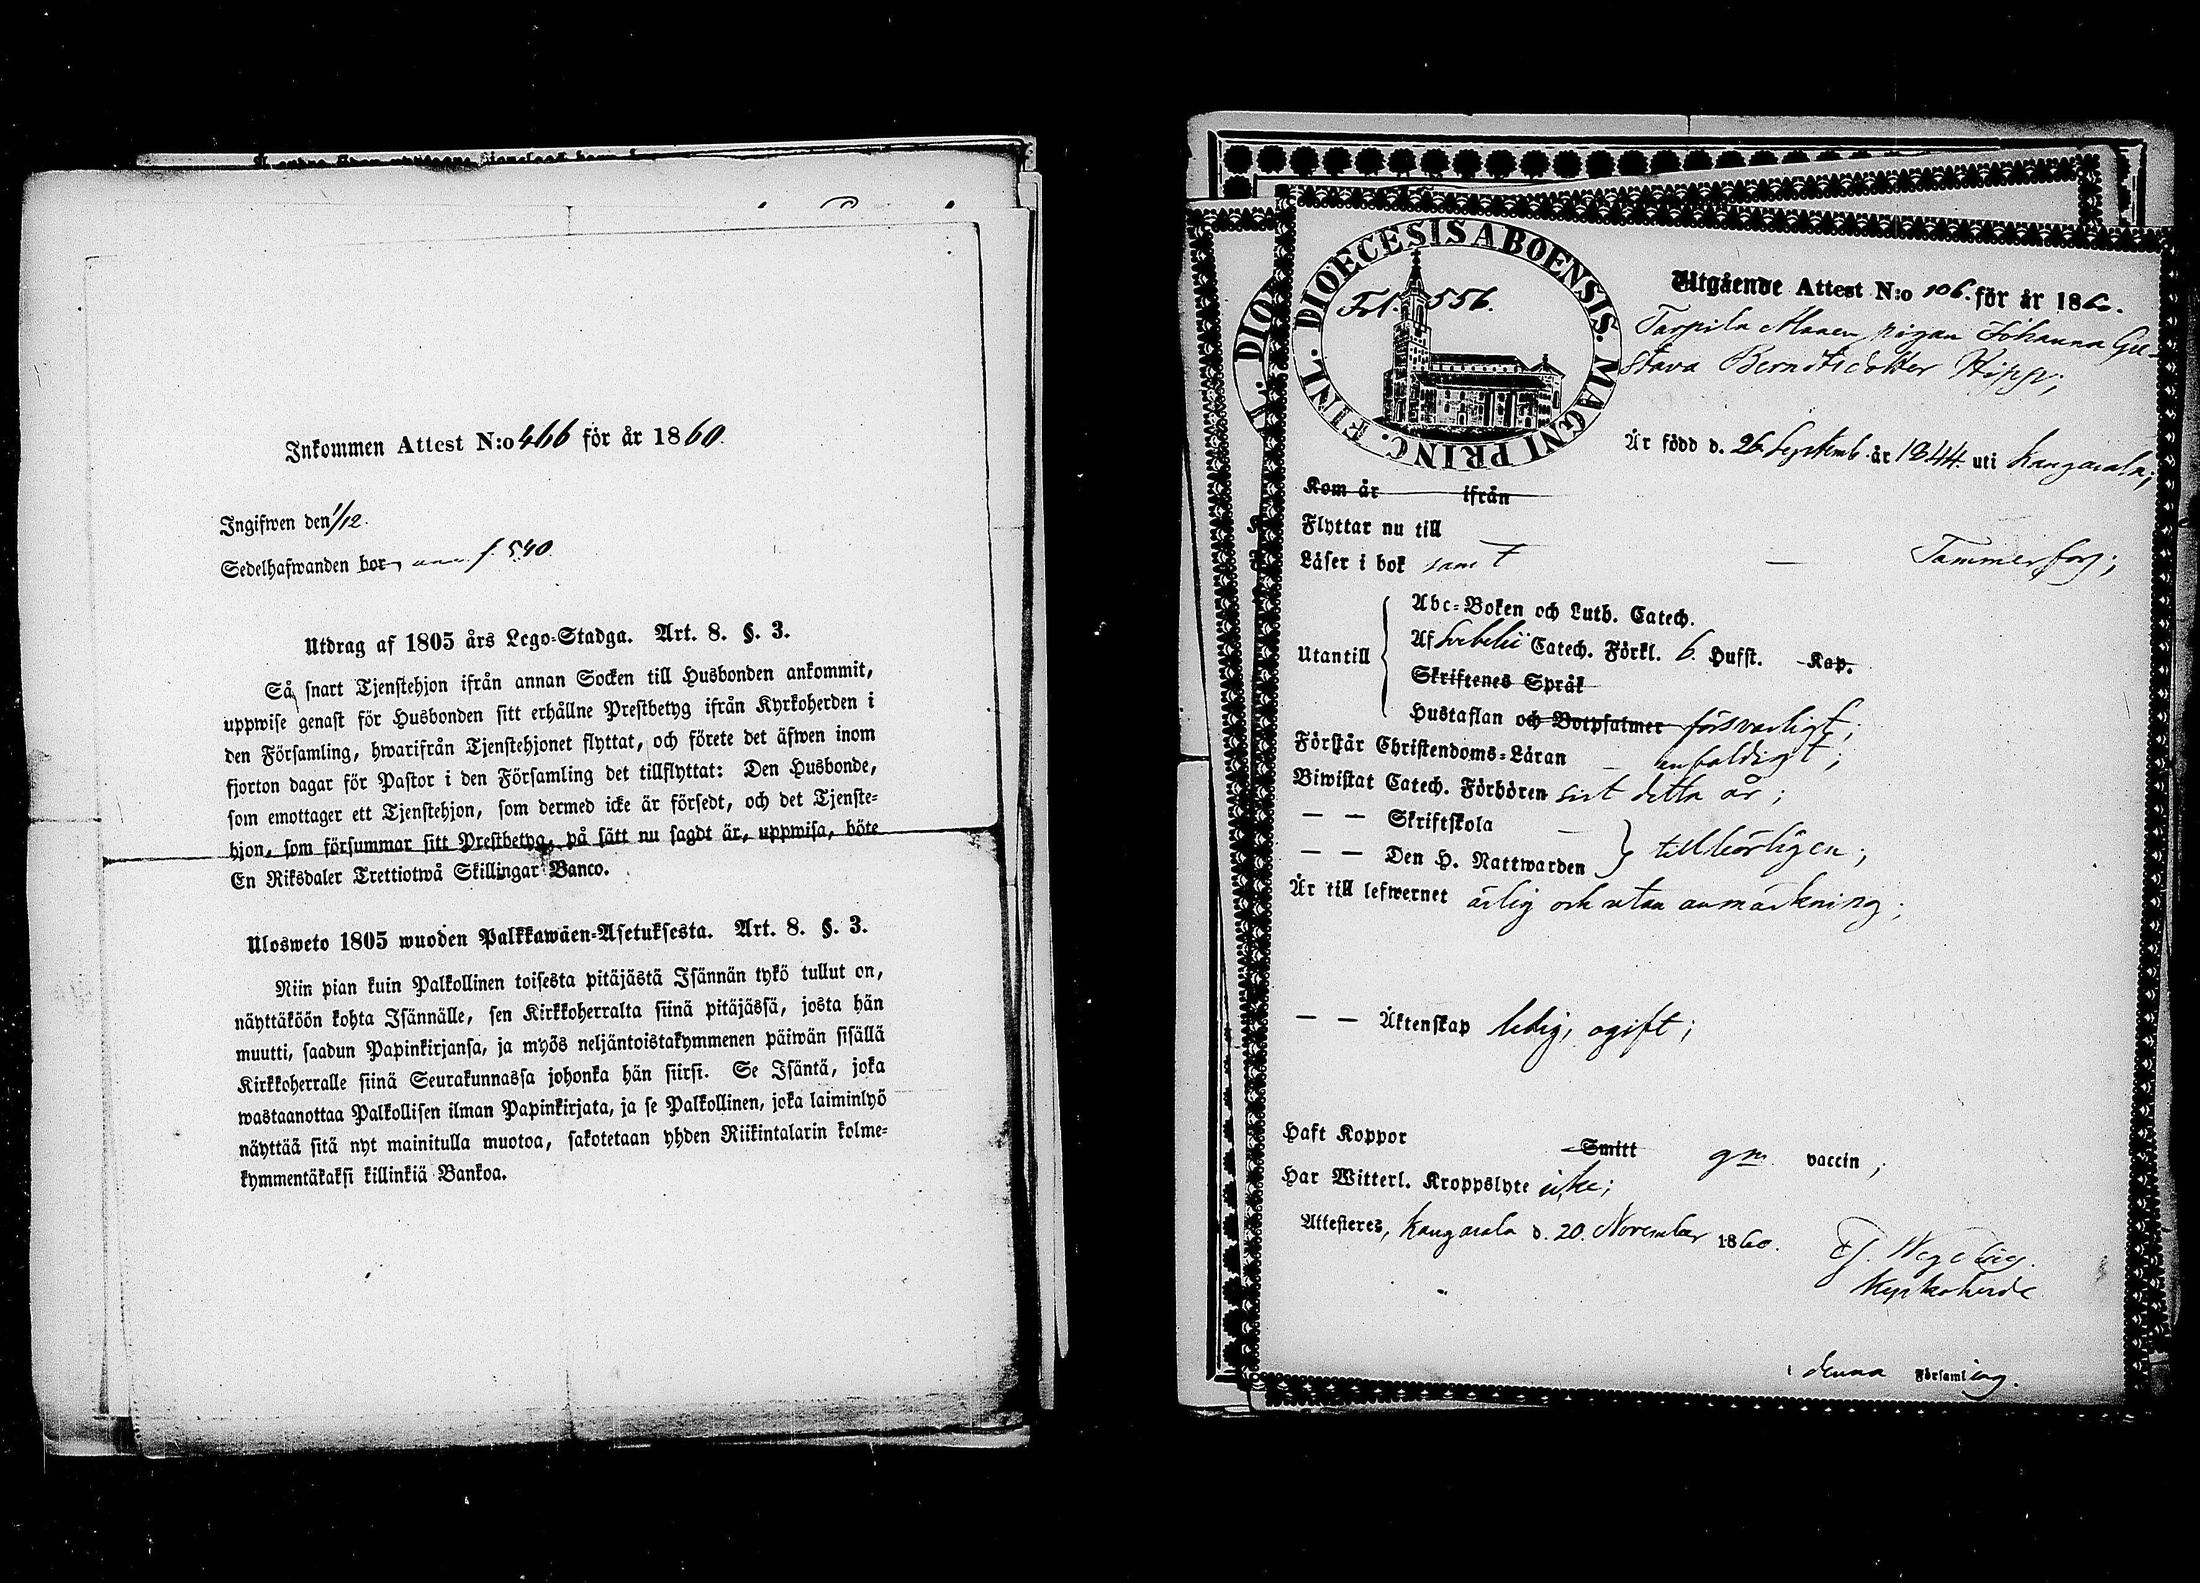 Inkommen Attest N:o 466 för år 1860.
Ingifwen den 1/12.
Sedelhafwanden bor f. 540
Utdrag af 1805 års Lego-Stadga. Art. 8. §. 3.
Så snart Tjenstehjon ifrån annan Socken till Husbonden ankommit,
uppwise genast för Husbonden sitt erhållne Prestbetyg ifrån Kyrkoherden i
den Församling, hwarifrån Tjenstehjonet flyttat, och förete det äfwen inom
fjorton dagar för Pastor i den Församling det tillflyttat: Den Husbonde,
som emottager ett Tjenstehjon, som dermed icke är försedt, och det Tjenste-
hjon, som försummar sitt Prestbetyg, på sätt nu sagdt är, uppwisa, böte
En Riksdaler Trettiotwå Skillingar Banco.
Ulosweto 1805 wuoden Palkkawäen-Asetuksesta. Art. 8. §. 3.
Niin pian kuin Palkollinen toisesta pitäjästä Isännän tykö tullut on,
näyttäköön kohta Isännälle, sen Kirkkoherralta siinä pitäjässä, josta hän
muutti, saadun Papinkirjansa, ja myös neljäntoistakymmenen päiwän sisällä
Kirkkoherralle siinä Seurakunnassa johonka hän siirsi. Se Isäntä, joka
wastaanottaa Palkollisen ilman Papinkirjata, ja se Palkollinen, joka laiminlyö
näyttää sitä nyt mainitulla muotoa, sakotetaan yhden Riikintalarin kolme-
kymmentäkaksi killinkiä Bankoa.
DIOECESIS ABOENSIS. MAGNI PRINC. FINL.
Fol. 556.
Utgående Attest N:o 106. för år 1860.
Tarpila pigan Johanna Gu-
stava Berndtsdotter
Är född d. 26 Septemb. år 1844. uti Kangasala;
Kom år ifrån
Flyttar nu till
Tammerfors;
Läser i bok samt
Utantill
Abc-Boken och Luth. Catech.
Af Svebelii Catech. Förkl. 6. Hufst. Kap.
Skriftenes Språk
Hustaflan och Botpsalmer försvarligt;
Förstår Christendoms-Läran enfaldigt;
Biwistat Catech. Förhören sist detta år;
— — Skriftskola
— — Den H. Nattwarden tillbörligen;
Är till lefwernet ärlig och utan anmärkning;
— — Äktenskap ledig, ogift;
Haft Koppor Smitt gm vaccin;
Har Witterl. Kroppslyte icke;
Attesteres, Kangasala d. 20. November 1860.
Kyrkoherde
i denna Församling.